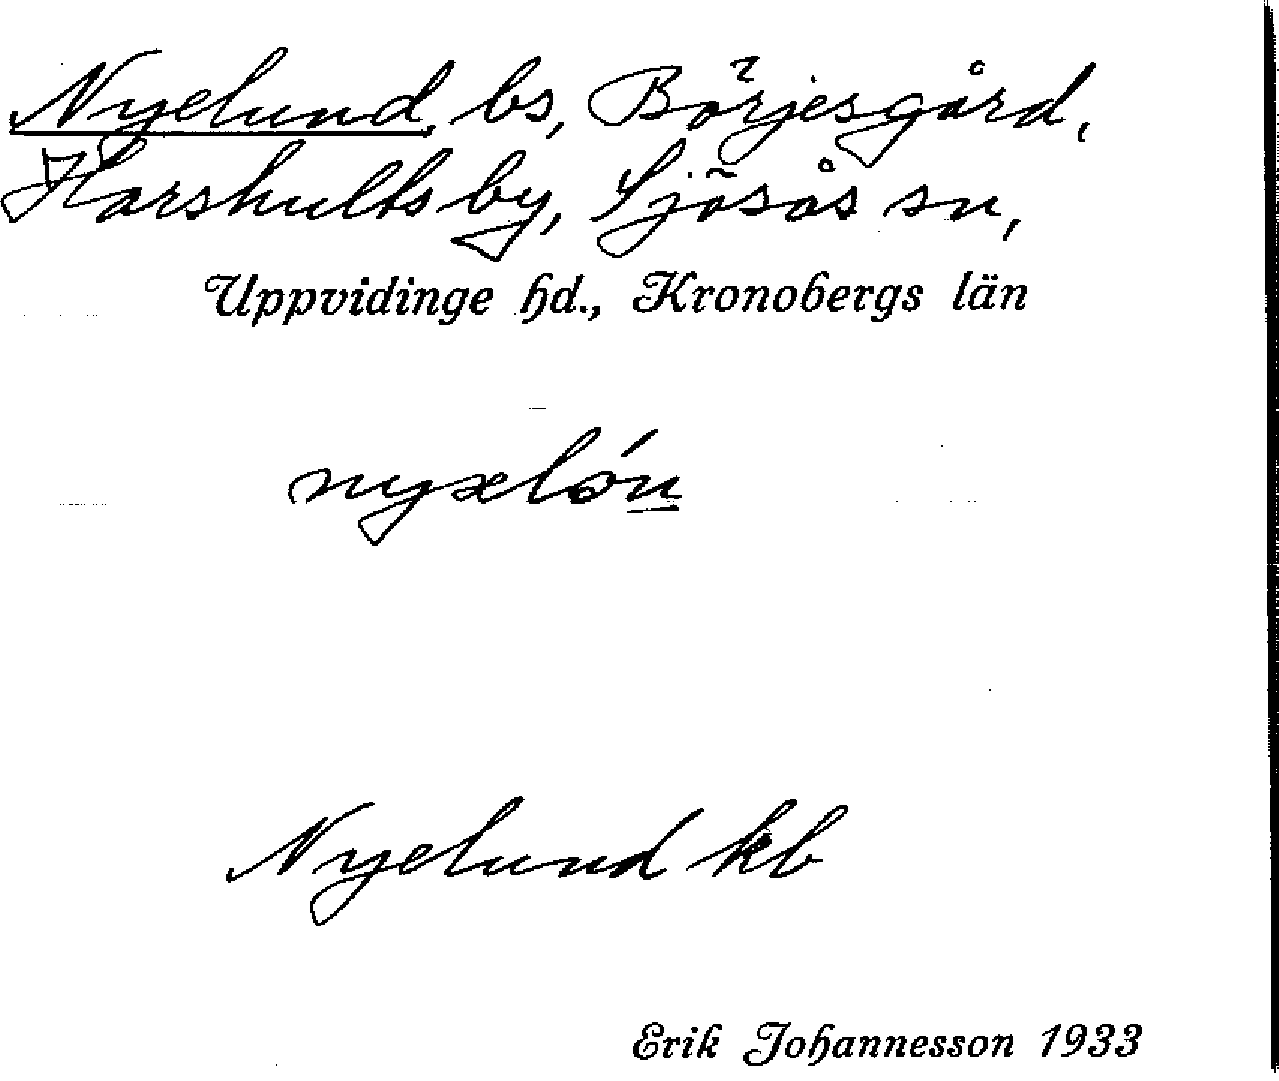 Nyelund, bs, Börjesgård,
Harshults by, Sjösås sn,
Uppvidinge hd., Kronobergs län
Nyelund kb
Erik Johannesson 1933